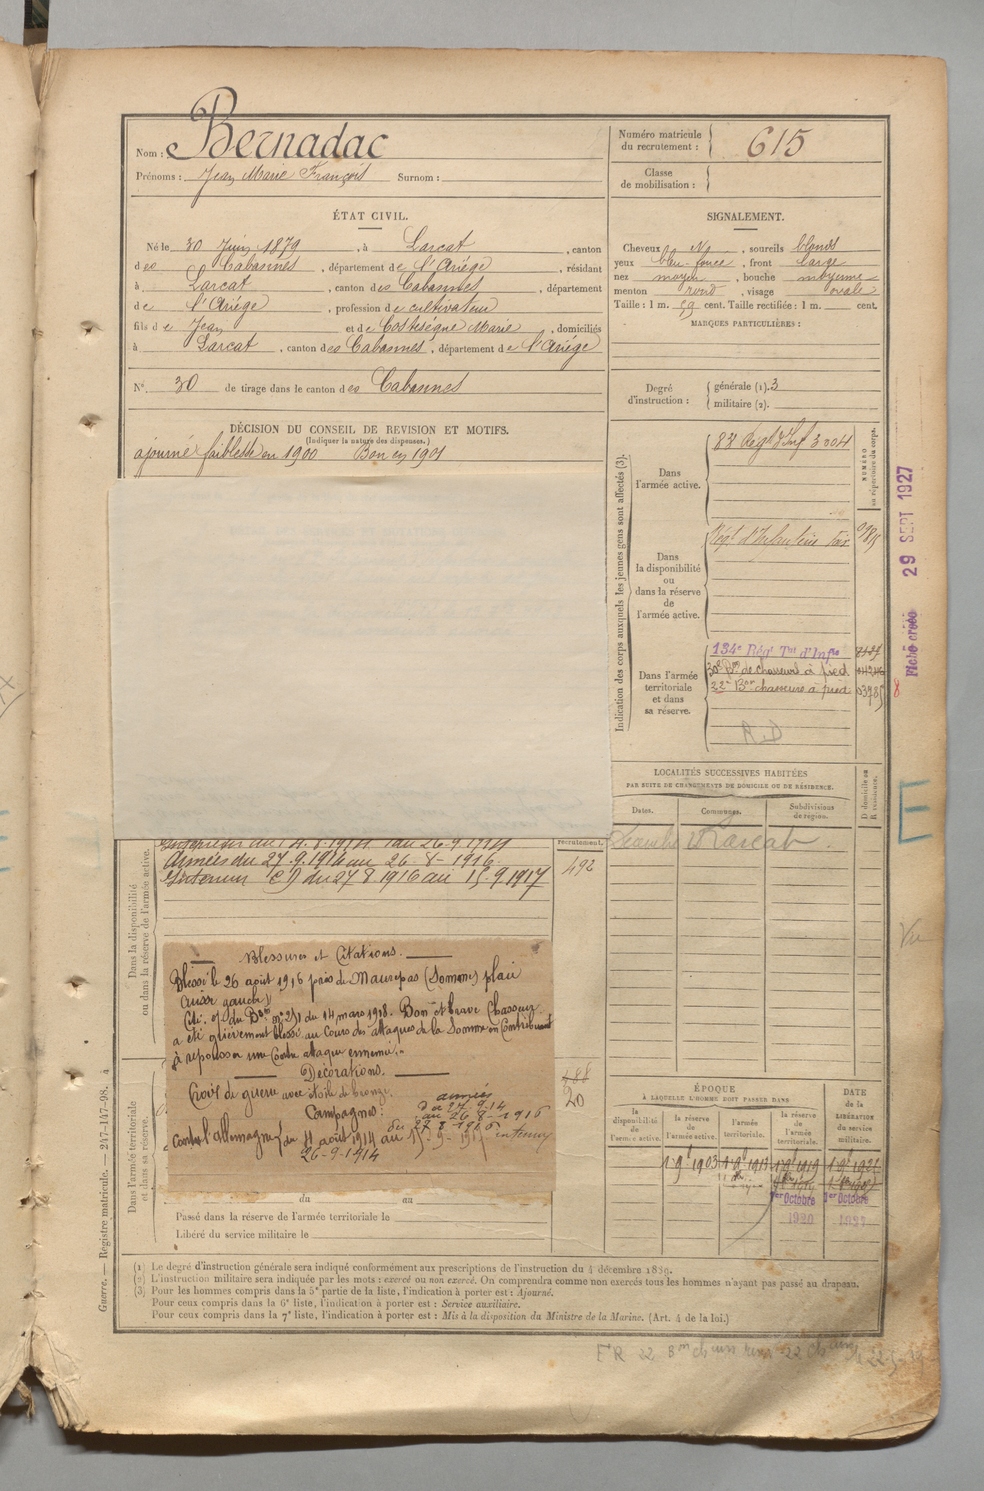 Nom : Bernadac
Prénoms : Jean Marie François Surnom :
Numéro matricule du recrutement : 615
Classe de mobilisation :
ÉTAT CIVIL.
Né le 30 Juin 1879, à Larcat, canton
des Cabannes, département de l'Ariége, résidant
à Larcat, canton des Cabannes, département
de l'Ariége, profession de cultivateur
fils de Jean et de Costesègne Marie, domiciliés
à Larcat, canton des Cabannes, département de l'Ariége
N° 30 de tirage dans le canton des Cabannes
DÉCISION DU CONSEIL DE REVISION ET MOTIFS.
(Indiquer la nature des dispenses.)
ajourné faiblesse en 1900 Bon en 1901
SIGNALEMENT.
Cheveux, sourcils blonds
yeux bleu foncé, front large
nez moyen, bouche moyenne
menton rond, visage ovale
Taille : 1 m. 59 cent. Taille rectifiée : 1 m. cent.
MARQUES PARTICULIÈRES :
Degré d'instruction : générale (1). 3
militaire (2).
Indication des corps auxquels les jeunes gens sont affectés (3).
NUMÉRO au répertoire du corps.
Dans l'armée active.
88 Régt d'Inf 3004
Dans la disponibilité ou dans la réserve de l'armée active.
Régt d'Infanterie Foix
Dans l'armée territoriale et dans sa réserve.
134e Régt Tal d'Infie
30e Bon de chasseurs à pied
22e Bon chasseurs à pied 03785
R.D
29 SEPT 1927
Fiche créée
8
LOCALITÉS SUCCESSIVES HABITÉES
PAR SUITE DE CHANGEMENTS DE DOMICILE OU DE RÉSIDENCE.
Dates. Communes. Subdivisions de région. D domicile ou R résidence.
Larcat
E
Vu
Dans la disponibilité ou dans la réserve de l'armée active.
recrutement.
492
Intérieur du 11.8.1914 au 26.9.1914
Armées du 27.9.1914 au 26-8-1916
Intérieur CD du 27 8 1916 au 15.9.1917
Blessures et Citations.
Blessé le 26 août 1916 près de Maurepas (Somme) plaie
cuisse gauche)
Cité. O/ du Bon n° 251 du 14 mars 1918. Bon et brave Chasseur
a été grièvement blessé au cours des attaques de la Somme en contribuant
à repousser une Contre attaque ennemie.
Décorations.
Croix de guerre avec étoile de bronze.
Campagnes:
armées
du 27.9.14
au 26-8-1916
du 27 8 1916
Contre l'allemagne du 11 août 1914 au 15-9-1917 intérieur
26-9-1914
Dans l'armée territoriale et dans sa réserve.
488
20
du au
Passé dans la réserve de l'armée territoriale le
Libéré du service militaire le
ÉPOQUE
À LAQUELLE L'HOMME DOIT PASSER DANS
DATE de la LIBÉRATION du service militaire.
la disponibilité de l'armée active. la réserve de l'armée active. l'armée territoriale. la réserve de l'armée territoriale.
1 9bre 1903 1 9bre 1913 1 9bre 1919
1er Octobre 1er Octobre
1920
(1) Le degré d'instruction générale sera indiqué conformément aux prescriptions de l'instruction du 4 décembre 1889.
(2) L'instruction militaire sera indiquée par les mots : exercé ou non exercé. On comprendra comme non exercés tous les hommes n'ayant pas passé au drapeau.
(3) Pour les hommes compris dans la 5e partie de la liste, l'indication à porter est : Ajourné.
Pour ceux compris dans la 6e liste, l'indication à porter est : Service auxiliaire.
Pour ceux compris dans la 7e liste, l'indication à porter est : Mis à la disposition du Ministre de la Marine. (Art. 4 de la loi.)
Guerre. — Registre matricule. — 247-147-98. 4